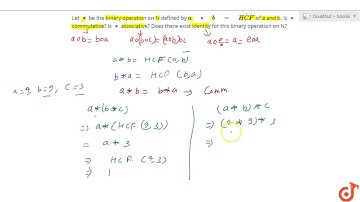 Let * be the binary operation on N defined by a * b = HCF of a and b. Is *
commutative? Is * associative? Does there exist identity for this binary operation on N?
a o b = b o a
a o (b o c) = (a o b) o c
a o e = a = e o a
a * b = HCF (a, b)
b * a = HCF (a, b)
a * b = b * a → Comm.
b = 9, c = 3
a * (b * c)
⇒ a * (HCF (9, 3))
= a * 3
⇒ HCF (9, 3)
⇒ 1
(a * b) * c
⇒ * 9) * 3
⇒